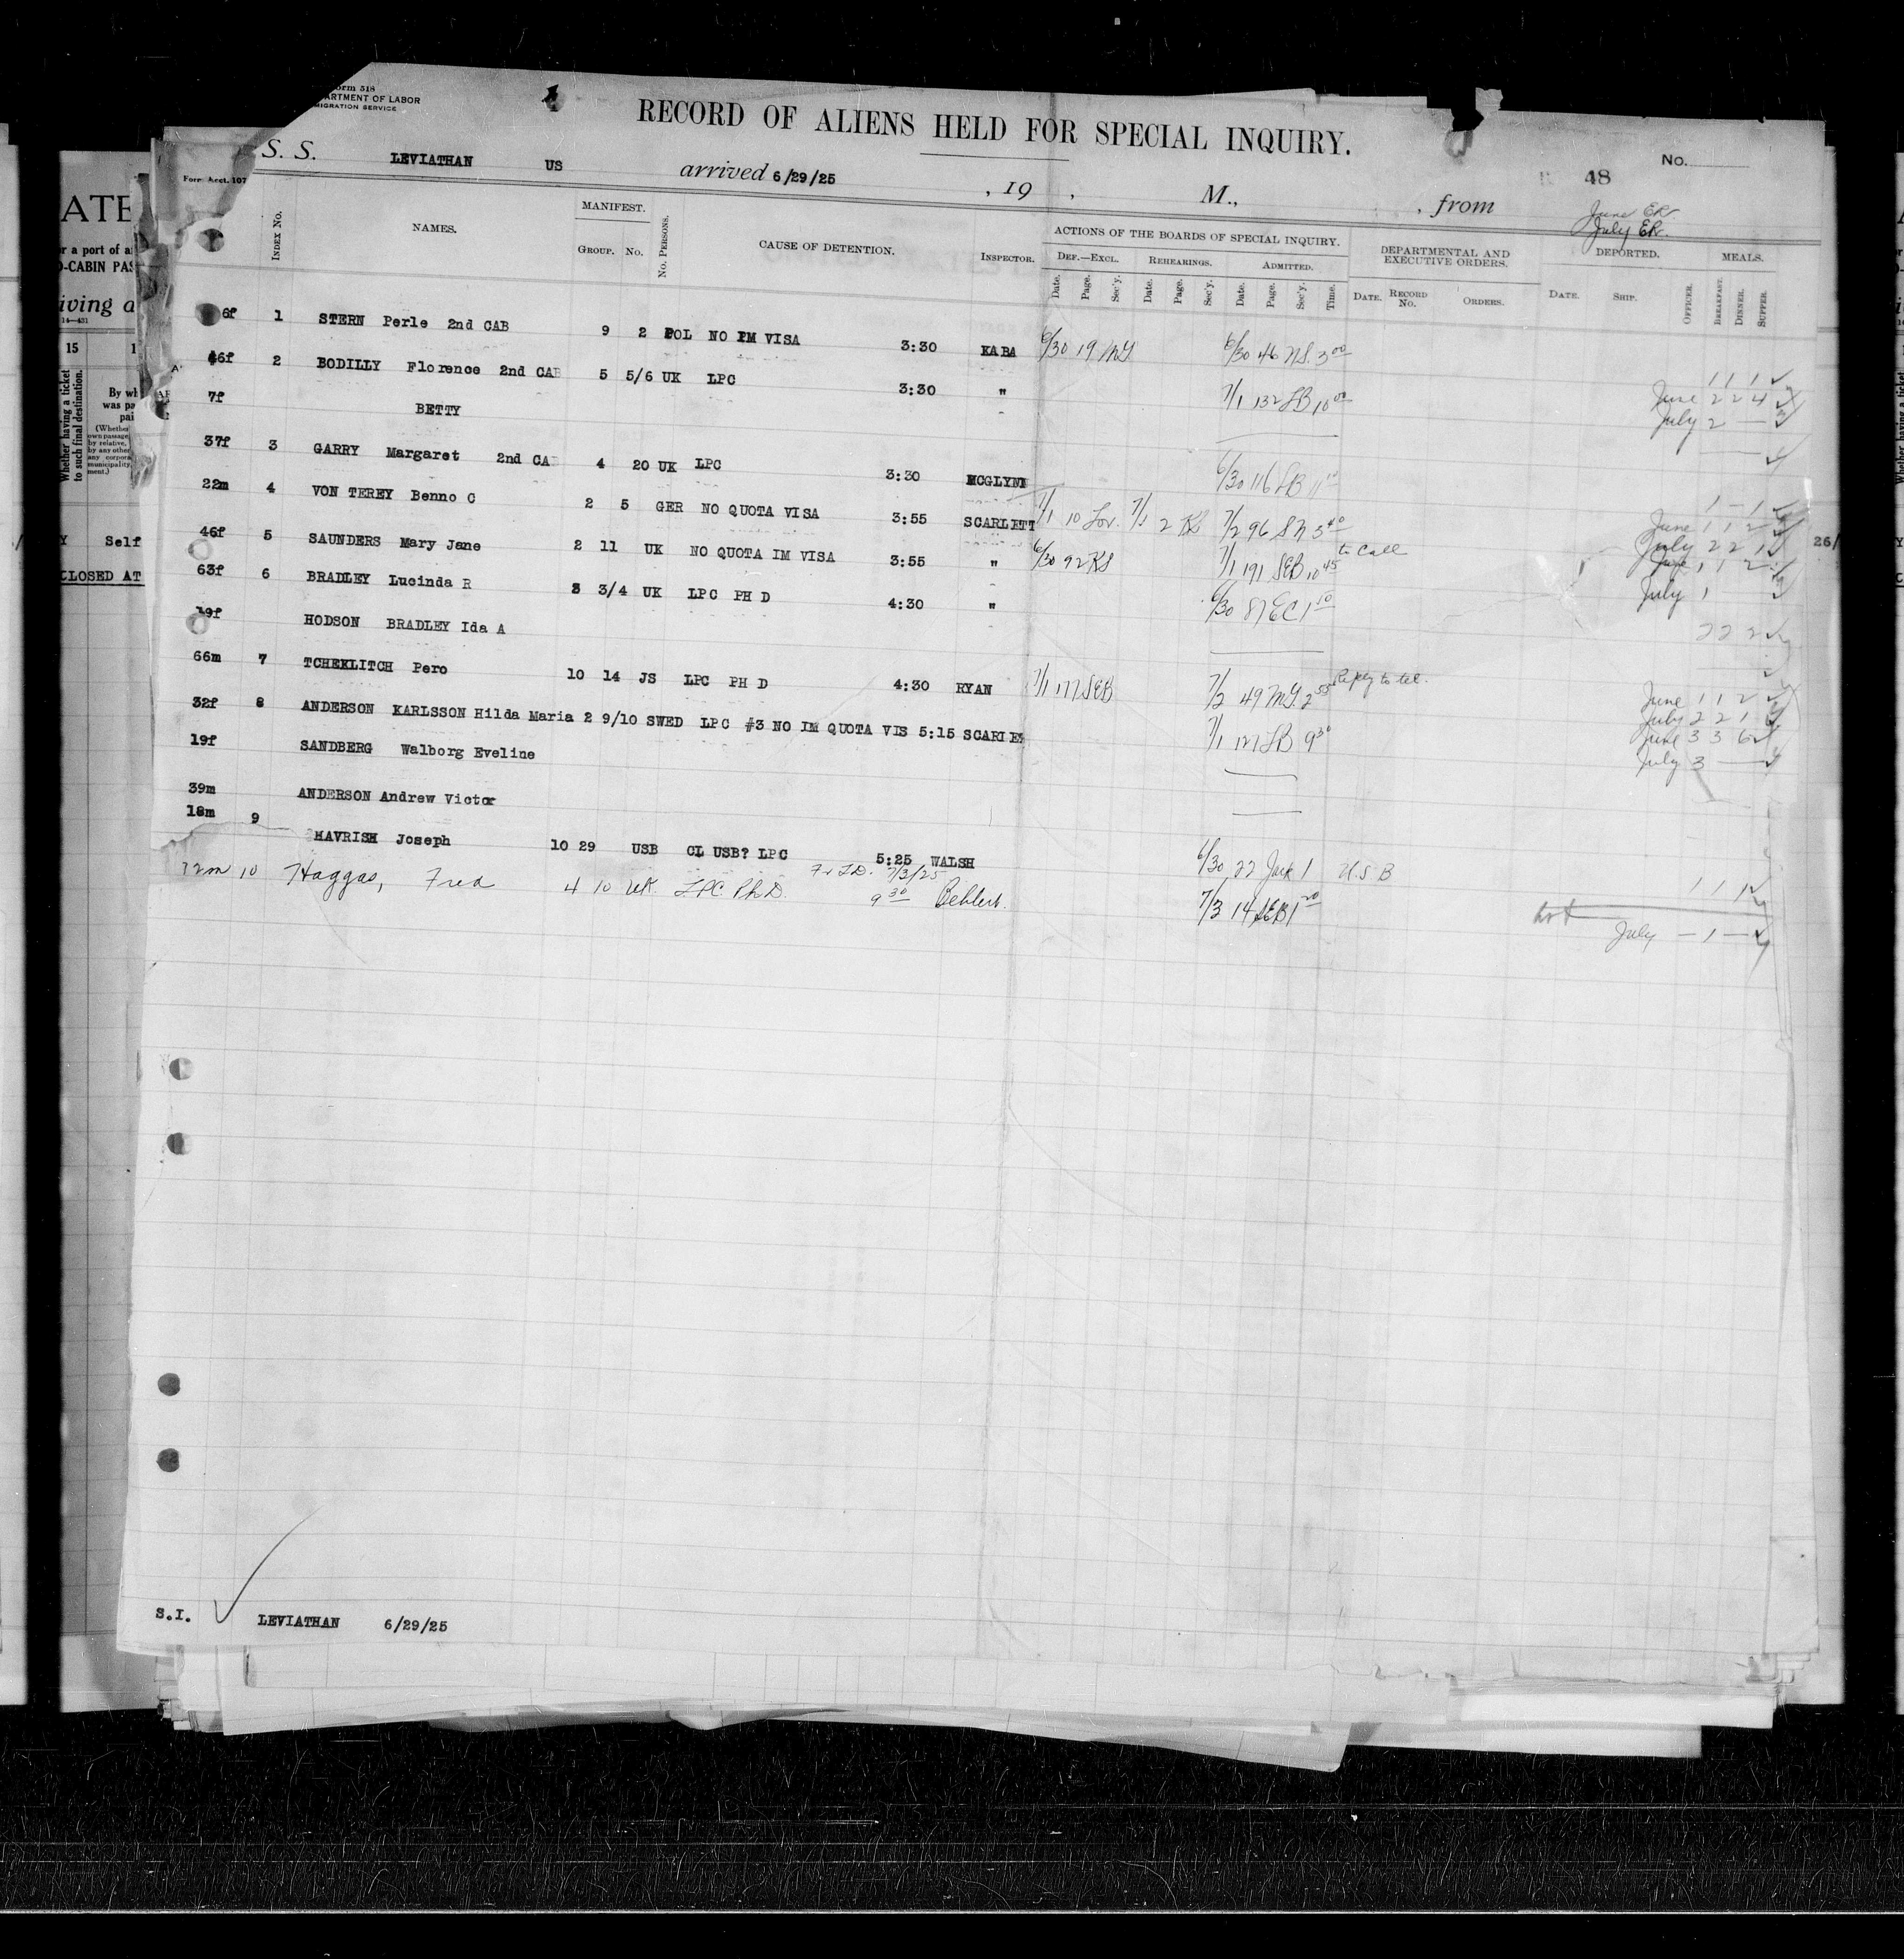 RECORD OF ALIENS HELD FOR SPECIAL INQUIRY.
No.
S. S. LEVIATHAN US arrived 6/29/25 , 19 , M., , from
48
June ER
July ER.
INDEX No. NAMES. MANIFEST. GROUP. No. No. PERSONS. CAUSE OF DETENTION. INSPECTOR.
ACTIONS OF THE BOARDS OF SPECIAL INQUIRY. DEF.—EXCL. Date. Page. Sec'y. REHEARINGS. Date. Page. Sec'y. ADMITTED. Date. Page. Sec'y. Time.
DEPARTMENTAL AND EXECUTIVE ORDERS. DATE. RECORD No. ORDERS. DEPORTED. DATE. SHIP. OFFICER. MEALS. BREAKFAST. DINNER. SUPPER.
1 STERN Perle 2nd CAB 9 2 POL NO IM VISA 3:30 KABA 6/30 19 6/30 46 NS 3 00 1 1 1
46f 2 BODILLY Florence 2nd CAB 5 5/6 UK LPC 3:30 " 7/1 132 LB 10 00 June 2 2 4
7f BETTY July 2 —
37f 3 GARRY Margaret 2nd CA 4 20 UK LPC 3:30 MCGLYNN 6/30 116 LB 1 — 1
22m 4 VON TEREY Benno C 2 5 GER NO QUOTA VISA 3:55 SCARLETT 7/1 10 Lov. 2 KS 7/2 96 S N 3 40 June 1 1 2
July 2 2 1
46f 5 SAUNDERS Mary Jane 2 11 UK NO QUOTA IM VISA 3:55 " 6/30 92 KS 7/1 191 SEB 10 45 to Call June 1 1 2
July 1
63f 6 BRADLEY Lucinda R 3/4 UK LPC PH D 4:30 " 6/30 87 EC 1 10 2 2 2
19f HODSON BRADLEY Ida A
66m 7 TCHEKLITCH Pero 10 14 JS LPC PH D 4:30 RYAN 7/1 177 SEB 7/2 49 2 55 Reply to tel. June 1 1 2
July 2 2 1
32f 8 ANDERSON KARLSSON Hilda Maria 2 9/10 SWED LPC #3 NO IM QUOTA VIS 5:15 SCARLET 7/1 127 LB 9 30 June 3 3 6
July 3 —
19f SANDBERG Walborg Eveline
39m ANDERSON Andrew Victor
18m 9 MAVRISH Joseph 10 29 USB CL USB? LPC 5:25 WALSH 6/30 22 1 U.S B 1 1 1
10 Haggas, Fred 4 10 UK. LPC. Ph.D. 7/3/25 9 30 7/3 14 SEB 1 20 July — 1 —
S.I. LEVIATHAN 6/29/25